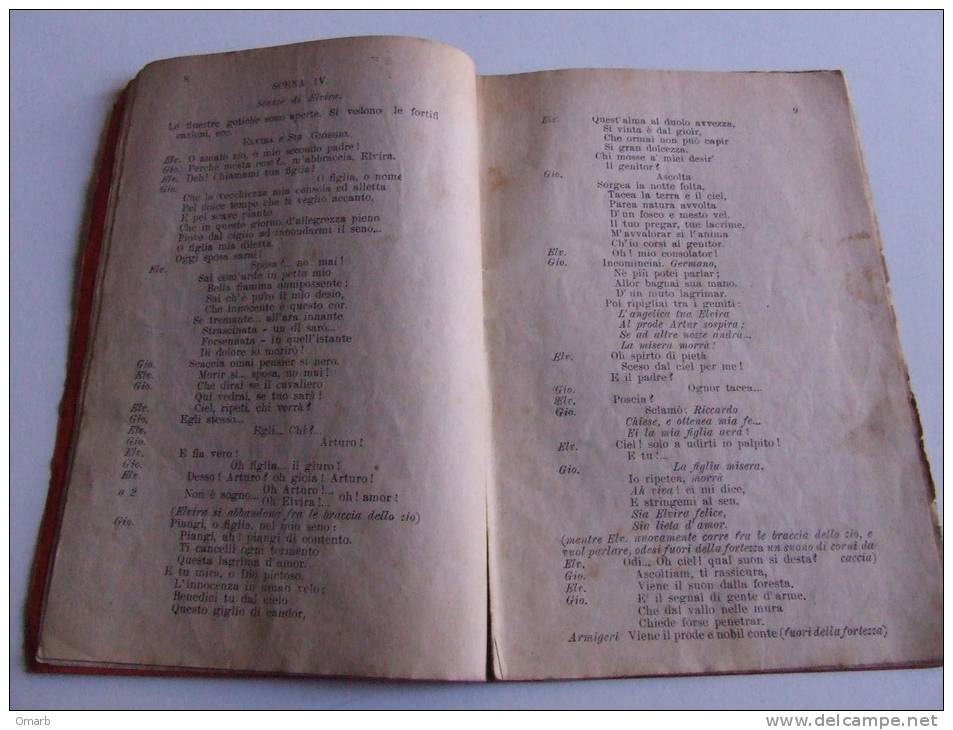 8
SCENA IV.
Stanze di Elvira.
Le finestre gotiche sono aperte. Si vedono le fortifi
cazioni, ecc.
ELVIRA E SIR GIORGIO.
Elv. O amato zio, o mio secondo padre!
Gio. Perchè mesta così?.. m'abbraccia, Elvira.
Elv. Deh! Chiamami tua figlia!
Gio. O figlia, o nome
Che la vecchiezza mia consola ed alletta
Pel dolce tempo che ti veglio accanto,
E pel soave pianto
Che in questo giorno d'allegrezza pieno
Piove dal ciglio ad innondarmi il seno...
O figlia mia diletta.
Oggi sposa sarai!
Elv. Sposa!.. no, mai!
Sai com'arde in petto mio
Bella fiamma onnipossente;
Sai ch'è puro il mio desio,
Che innocente è questo cor.
Se tremante... all'ara innante
Strascinata - un dì sarò...
Forsennata - in quell'istante
Di dolore io morirò!
Gio. Scaccia omai pensier sì nero.
Elv. Morir sì... sposa, no mai!
Gio. Che dirai se il cavaliero
Qui vedrai, se tuo sarà!
Elv. Ciel, ripeti, chi verrà?
Gio. Egli stesso...
Elv. Egli... Chi?...
Gio. Arturo!
Elv. E fia vero!
Gio. Oh figlia... il giuro!
Elv. Desso! Arturo! oh gioia! Arturo!
a 2 Non è sogno... Oh Arturo!... oh! amor!
Oh Elvira!..
(Elvira si abbandona fra le braccia dello zio)
Gio. Piangi, o figlia, nel mio seno:
Piangi, ah! piangi di contento.
Ti cancelli ogni tormento
Questa lagrima d'amor.
E tu mira, o Dio pietoso,
L'innocenza in uman velo;
Benedici tu dal cielo
Questo giglio di candor,
9
Elv. Quest'alma al duolo avvezza,
Sì vinta è dal gioir,
Che ormai non può capir
Sì gran dolcezza.
Chi mosse a' miei desir'
Il genitor?
Gio. Ascolta
Sorgea la notte folta,
Tacea la terra e il ciel,
Parea natura avvolta
D'un fosco e mesto vel.
Il tuo pregar, tue lacrime,
M'avvalorar sì l'anima
Ch'io corsi al genitor.
Elv. Oh! mio consolator!
Gio. Incominciai. Germano,
Nè più potei parlar;
Allor bagnai sua mano.
D'un muto lagrimar.
Poi ripigliai tra i gemiti:
L'angelica tua Elvira
Al prode Artur sospira;
Se ad altre nozze andrà...
La misera morrà!
Elv. Oh spirto di pietà
Sceso dal ciel per me!
E il padre?
Gio. Ognor tacea...
Elv. Poscia?
Gio. Sclamò: Riccardo
Chiese, e ottenea mia fe...
Ei la mia figlia avrà!
Elv. Ciel! solo a udirti io palpito!
E tu!...
Gio. La figlia misera,
Io ripetea, morrà
Ah viva! ei mi dice,
E stringemi al sen,
Sia Elvira felice,
Sia lieta d'amor.
(mentre Elv. nuovamente corre fra le braccia dello zio, e
vuol parlare, odesi fuori della fortezza un suono di corni da
Elv. Odi... Oh ciel! qual suon si desta? caccia)
Gio. Ascoltiam, ti rassicura,
Elv. Viene il suon dalla foresta.
Gio. E il segnal di gente d'arme.
Che dal vallo nelle mura
Chiede forse penetrar.
Armigeri Viene il prode e nobil conte (fuori della fortezza)
Omarb
www.delcampe.net